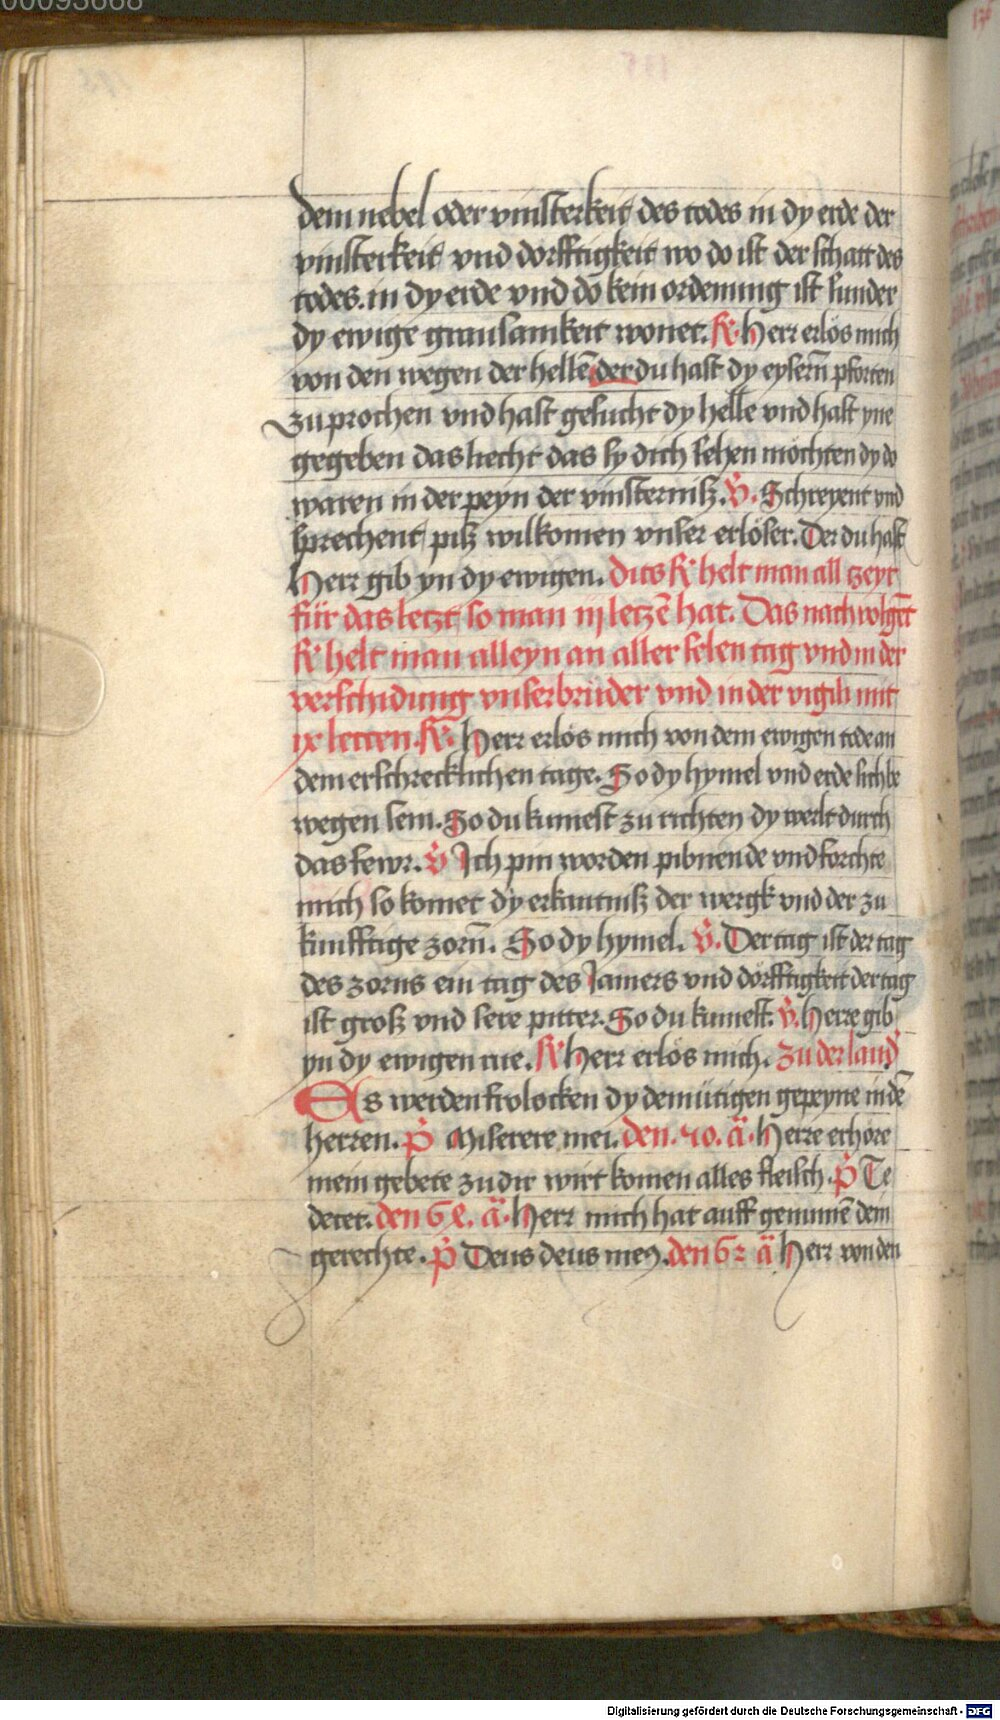 00093668
dem nebel oder vinsterkeit des todes in dy erde der
vinsterkeit vnd dorfftigkeit wo do ist der schatt des
todes. in dy erde vnd do kein ordenung ist sunder
dy ewige grausamkeit wonet. R. Herr erlös mich
von den wegen der hellē der du hast dy eyserñ pforten
zuprochen vnd hast gesucht dy helle vnd hast yne
gegeben das liecht das sy dich sehen möchten dy do
waren in der peyn der vinsterniß. V̊. Schreyent vnd
sprechent piß wilkomen vnser erlöser. Der du hast
Herr gib yn dy ewigen. Dits R helt man all tzeyt
für das letzt so man iij letzē hat. Das nachvolgēt
R helt man alleyn an aller selen tag vnd in der
verschidung vnser brüder vnd in der vigili mit
ix letcen. R. Herr erlös mich von dem ewigen tode an
dem erschrecklichen tage. So dy hymel vnd erde sich be
wegen sein. So du kumest zu richten dy werlt durch
das fewr. V̊ Ich pin worden pibnende vnd forchte
mich so komet dy erkantniß der wergk vnd der zu
kunfftige zorñ. So dy hymel. V̊. Der tag ist der tag
des zorns ein tag des Jamers vnd dörfftigkeit der tag
ist groß vnd sere pitter. So du kumest. V̊. Herre gib
yn dy ewigen rue. R Herr erlös mich. zu der laud
Es werden frolocken dy demütigen gepeyne in dē
herren. P̊ Miserere mei. den. 40. ä. Herre erhöre
mein gebete zu dir wirt komen alles fleisch. P̊ Te
decet. den 62. ä. Herr mich hat auff genumē dein
gerechte. P̊ Deus deus meꝰ. den 62 ä Herr von den
Digitalisierung gefördert durch die Deutsche Forschungsgemeinschaft - DFG